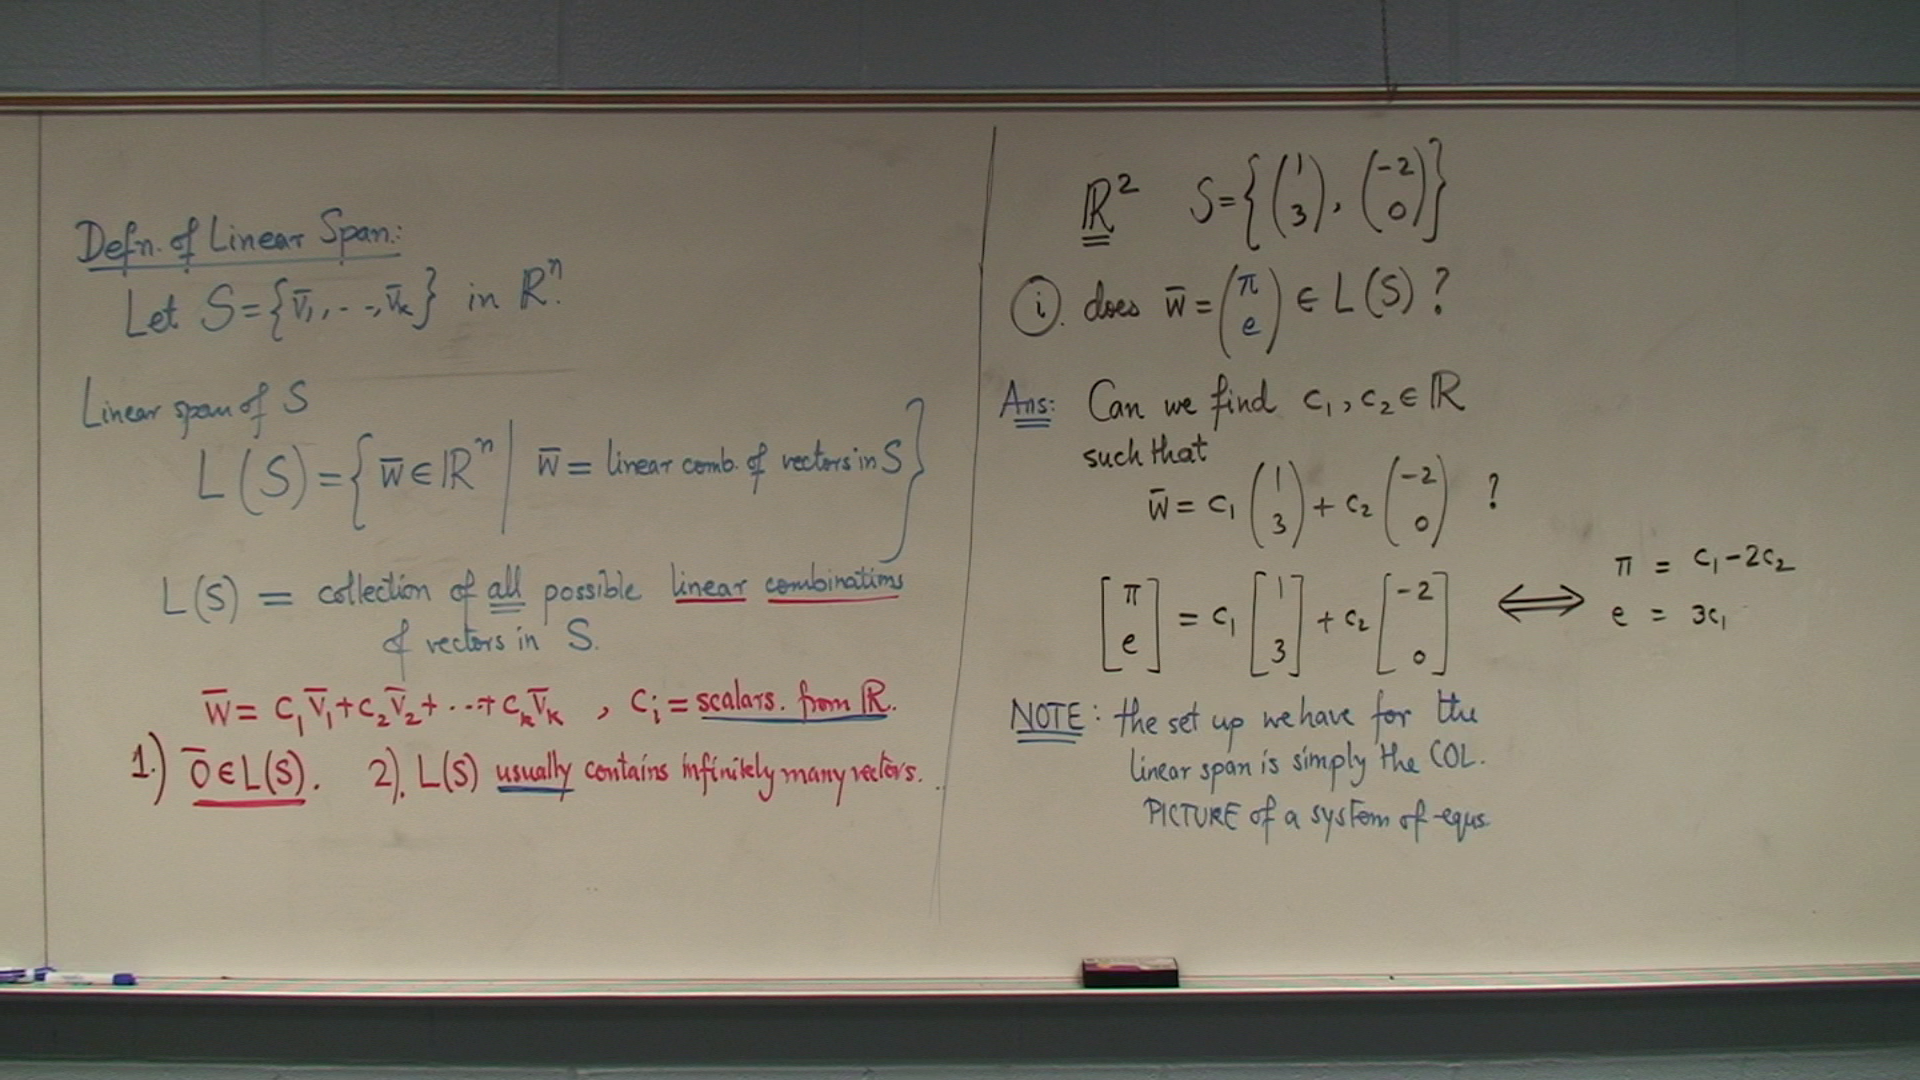 Defn. of Linear Span:
Let S = { v̄₁, . . , v̄ₖ } in ℝⁿ.
Linear span of S
L(S) = { w̄ ∈ ℝⁿ | w̄ = linear comb. of vectors in S }
L(S) = collection of all possible linear combinations
of vectors in S.
w̄ = c₁v̄₁ + c₂v̄₂ + ... + cₖv̄ₖ , cᵢ = scalars. from ℝ.
1.) 0̄ ∈ L(S). 2). L(S) usually contains infinitely many vectors.
ℝ² S = { (1 3), (-2 0) }
(i). does w̄ = (π e) ∈ L(S) ?
Ans: Can we find c₁, c₂ ∈ ℝ
such that
w̄ = c₁ (1 3) + c₂ (-2 0) ?
[π e] = c₁ [1 3] + c₂ [-2 0] ⟺
π = c₁ - 2c₂
e = 3c₁
NOTE: the set up we have for the
linear span is simply the COL.
PICTURE of a system of eqns.